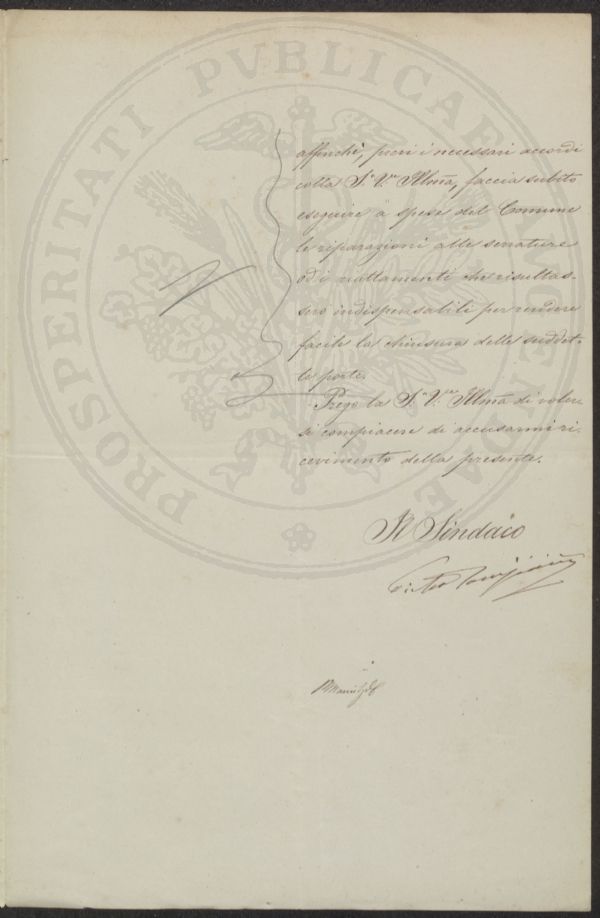 PROSPERITATI PVBLICAE AVGENDAE
affinchè, presi i necessari accordi
colla S.a V.ra Illm̃a, faccia subito
eseguire a spese del Comune
le riparazioni alle serrature
od i riattamenti che risultas-
sero indispensabili per rendere
facile la chiusura delle suddet-
te porte.
Prego la S.a V.ra Illm̃a di voler-
si compiacere di accusarmi ri-
cevimento della presente.
Il Sindaco